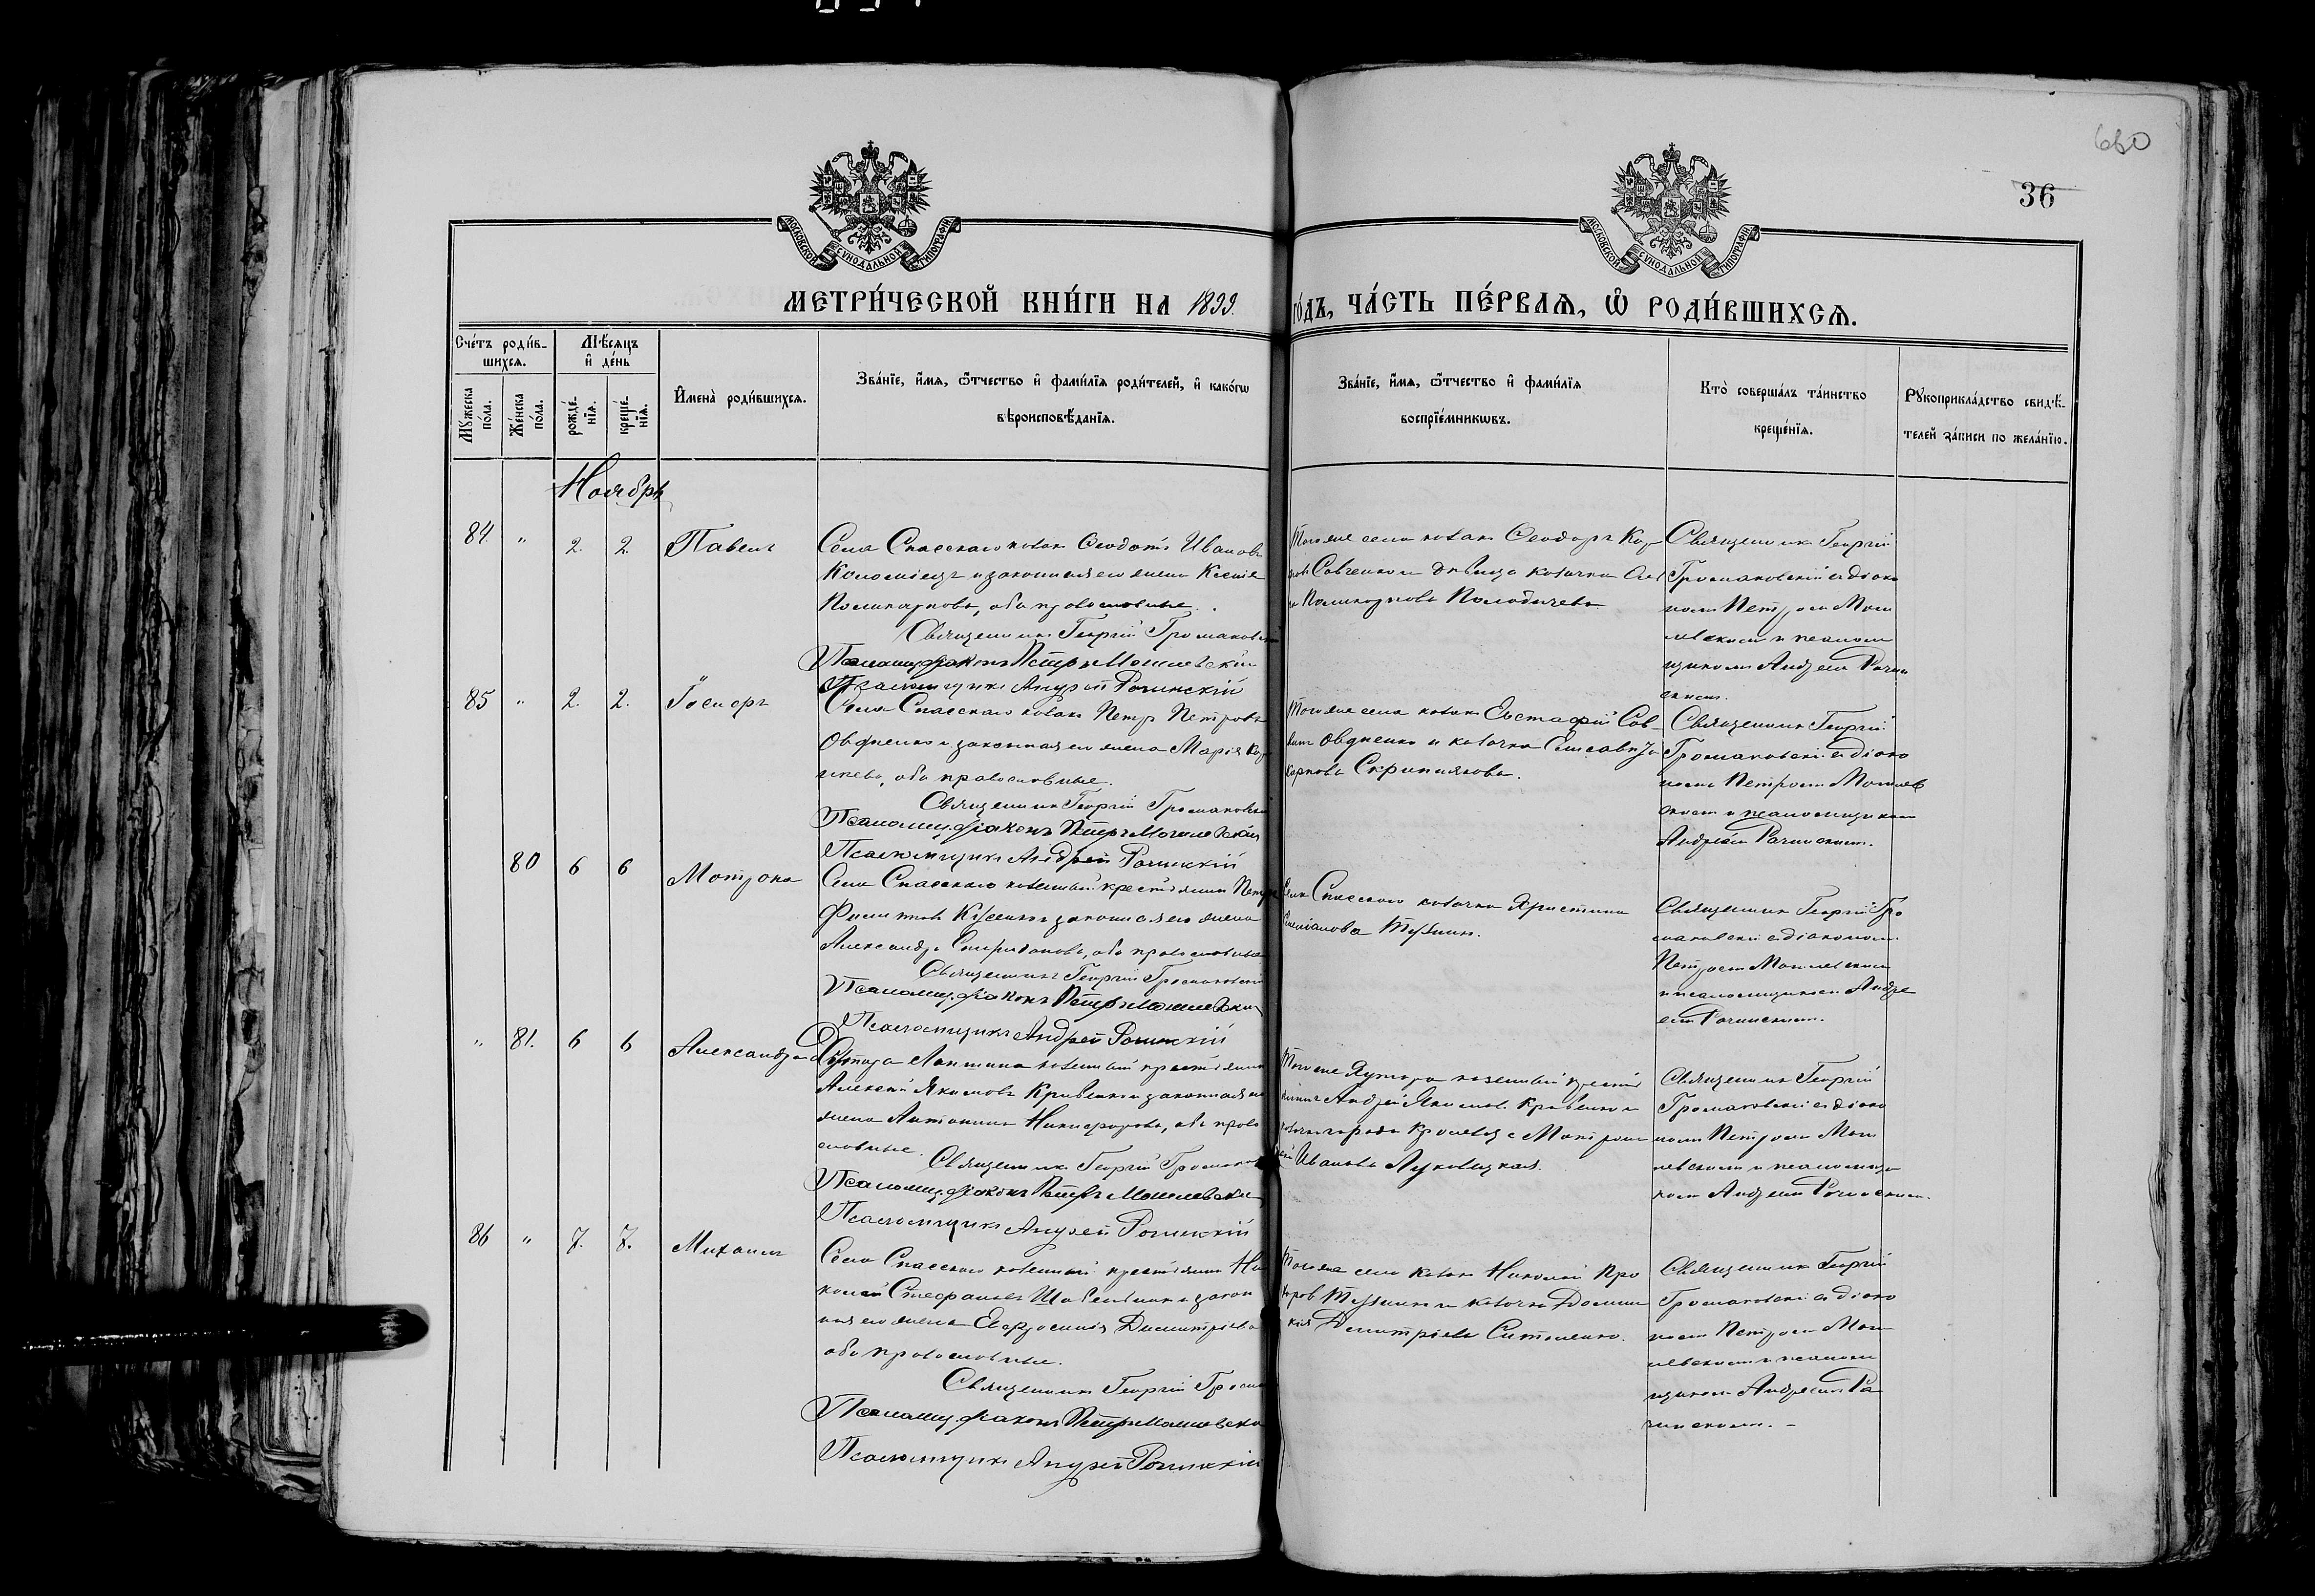 660
36
МОСКОВСКОЙ СѴНОДАЛЬНОЙ ТИПОГРАФІИ
МОСКОВСКОЙ СѴНОДАЛЬНОЙ ТИПОГРАФІИ
МЕТРИ́ЧЕСКОЙ КНИ́ГИ НА 1899.
го́дъ, ча́сть пе́рваѧ, ѡ҆ роди́вшихсѧ.
Сче́тъ роди́в-
шихсѧ.
Мѣ́сѧцъ
и҆ де́нь
Мꙋ́жеска
по́ла.
Же́нска
по́ла.
рожде́-
нїѧ.
креще́-
нїѧ.
И҆мена̀ роди́вшихсѧ.
Зва́нїе, и҆́мѧ, ѻ҆́тчество и҆ фами́лїѧ роди́телей, и҆ како́гѡ
вѣроисповѣ́данїѧ.
Зва́нїе, и҆́мѧ, ѻ҆́тчество и҆ фами́лїѧ
воспрїе́мникѡвъ.
Кто̀ соверша́лъ та́инство
креще́нїѧ.
Рꙋкоприкла́дство свидѣ́-
телей за́писи по жела́нїю.
Ноябрь
84. " 2. 2. Павелъ
Села Спасскаго козакъ Ѳеодотъ Ивановъ
Коломіецъ и законная его жена Ксенія
Поликарпова, оба православные.
Священникъ Георгій Громаковскій
Псаломщ. діаконъ Петръ Могилевскій
Псаломщикъ Андрей Рочинскій
Того же села козакъ Ѳеодоръ
Савченко и дѣвица козачка
Поликарпова
Священникъ Георгій
Громаковскій съ діако
номъ Петромъ Моги
левскимъ и псалом
щикомъ Андреемъ Рочин
скимъ.
85 " 2. 2. Іосифъ
Села Спасскаго козакъ Петръ Петровъ
Овдіенко и законная его жена Марія
оба православные.
Священникъ Георгій Громаковскій
Псаломщ. діаконъ Петръ Могилевскій
Псаломщикъ Андрей Рочинскій
Того же села козакъ Евстафій Сав-
Овдіенко и козачка Елисавета
Карпова
Священникъ Георгій
Громаковскій съ діако
номъ Петромъ Могилев
скимъ и псаломщикомъ
Андреемъ Рочинскимъ.
80 6 6 Матрона
Села Спасскаго казенный крестьянинъ Петръ
Филиповъ и законная его жена
Александра Спиридонова, оба православные
Священникъ Георгій Громаковскій
Псаломщ. діаконъ Петръ Могилевскій
Псаломщикъ Андрей Рочинскій
Села Спасскаго козачка Христина
Священникъ Георгій Гро
маковскій съ діакономъ
Петромъ Могилевскимъ
и псаломщикомъ Андре
емъ Рочинскимъ.
" 81. 6 6 Александра
Хутора казенный крестьянинъ
Алексей Якимовъ Кривенко и законная его
жена Антонина Никифорова, оба право
славные.
Священникъ Георгій Громаковскій
Псаломщ. діаконъ Петръ Могилевскій
Псаломщикъ Андрей Рочинскій
Того же Хутора казенный крестья
нинъ Андрей Якимовъ Кривенко и
города Кролевца Матрона
Иванова
Священникъ Георгій
Громаковскій съ діако
номъ Петромъ Моги
левскимъ и псаломщи
комъ Андреемъ Рочинскимъ.
86 " 7. 7. Михаилъ
Села Спасскаго казенный крестьянинъ Ни
колай Стефановъ и закон
ная его жена Евфросинія Димитріева
оба православные.
Священникъ Георгій
Псаломщ. діаконъ Петръ Могилевскій
Псаломщикъ Андрей Рочинскій
Того же села козакъ Николай
и козачка
Димитріева
Священникъ Георгій
Громаковскій съ діако
номъ Петромъ Моги
левскимъ и псалом
щикомъ Андреемъ Ро
чинскимъ. -